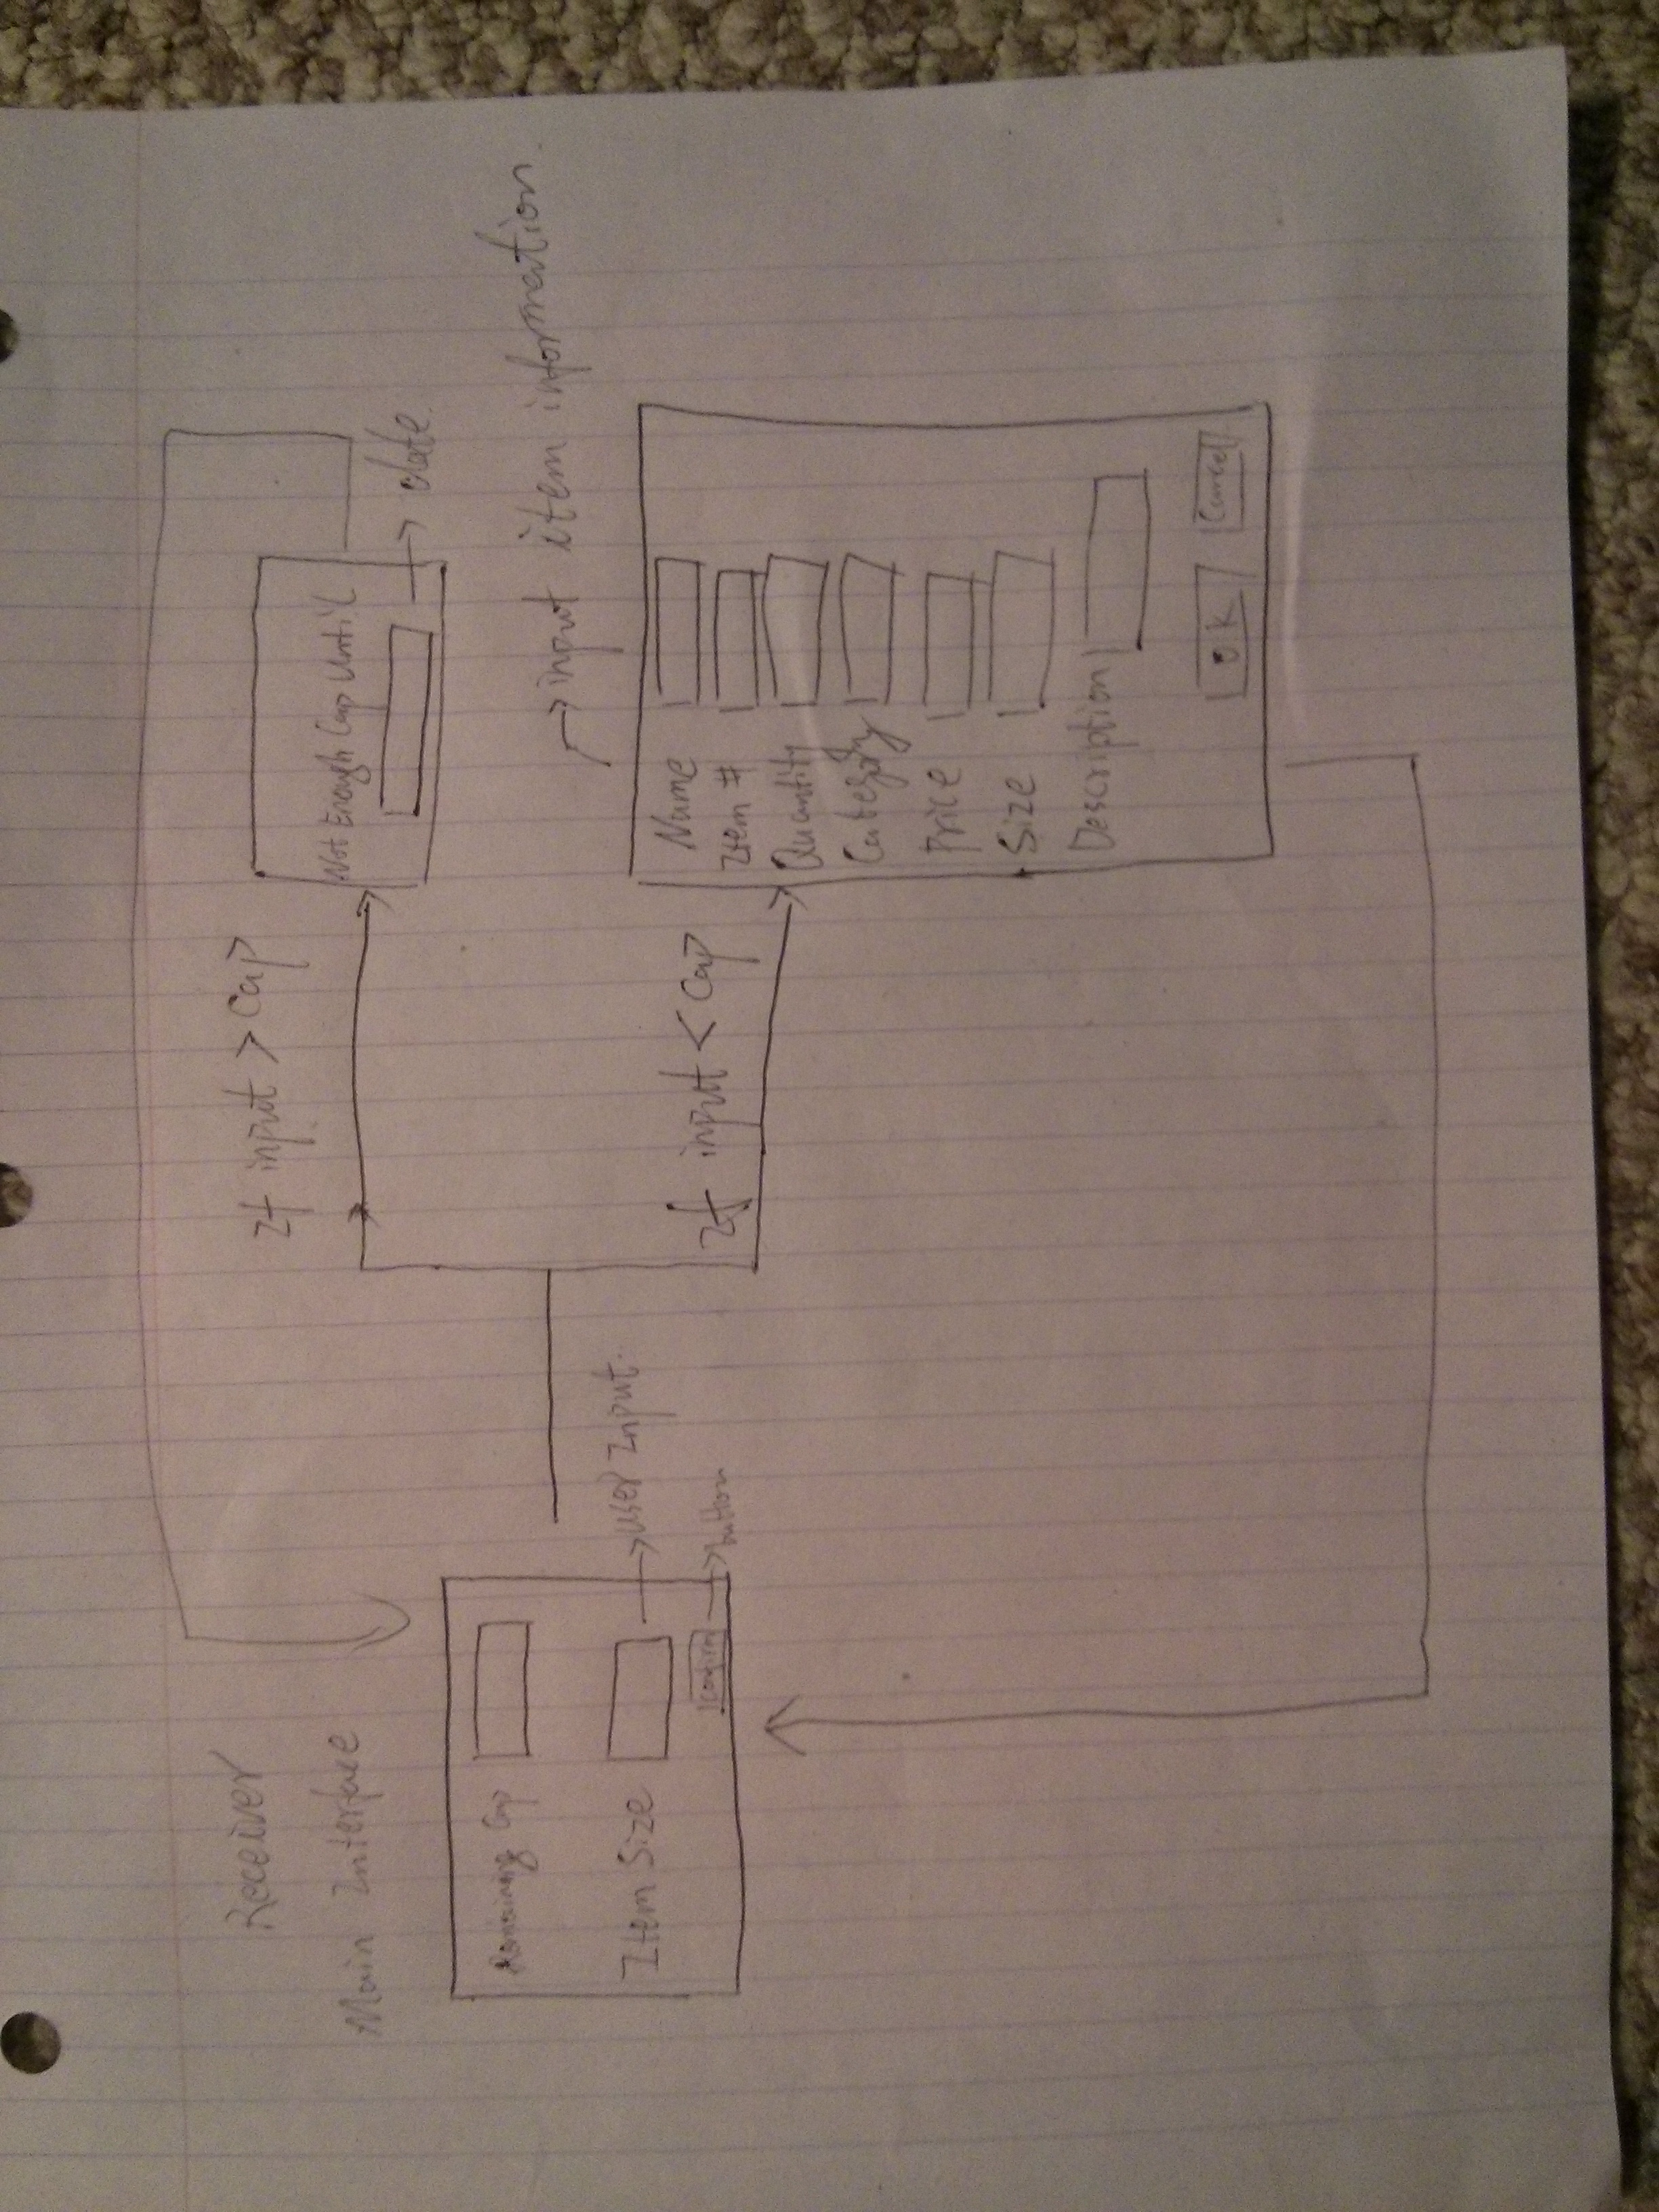 Receiver
Main Interface
Remaining Cap
Item Size
→ User Input.
Confirm → button
If input > Cap
Not Enough Cap Until
→ date.
If input < Cap
→ input item information.
Name
Item #
Quantity
Category
Price
Size
Description
OK
Cancel